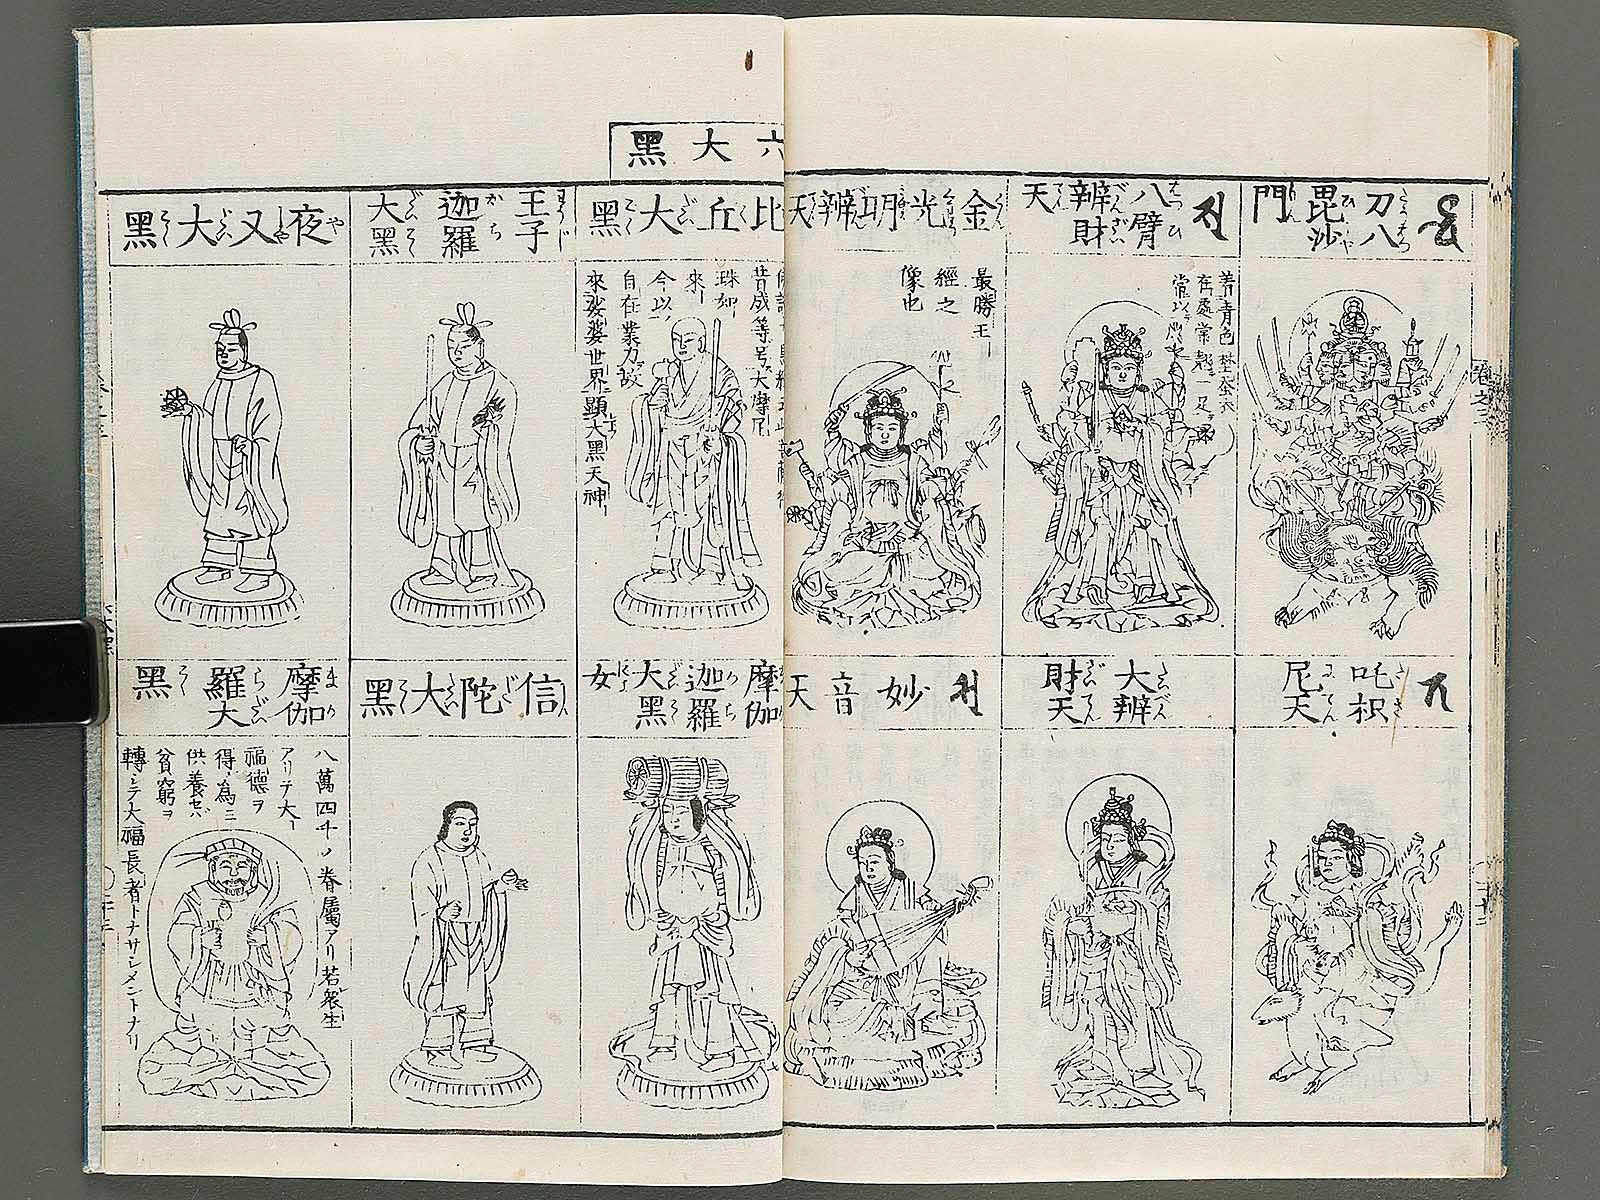 刀八
毘沙
門
八臂
辨財
天
著青色埜蚕衣
在處常翹一足
金光明辨天
最勝王
經之
像也
吒枳
尼天
大辨
財天
妙音天
六大黑
比丘大黑
昔成等号大摩尼
珠如
來
今以
自在業力故
來娑婆世界顕大黑天神
王子
迦羅
大黑
夜叉大黑
摩伽
迦羅
大黑
女
信陀大黑
摩伽
羅大
黑
八萬四千ノ眷屬アリ若衆生
アリテ大
福德ヲ
得為ニ
供養セハ
貧窮ヲ
轉シテ大福長者トナサシメントナリ